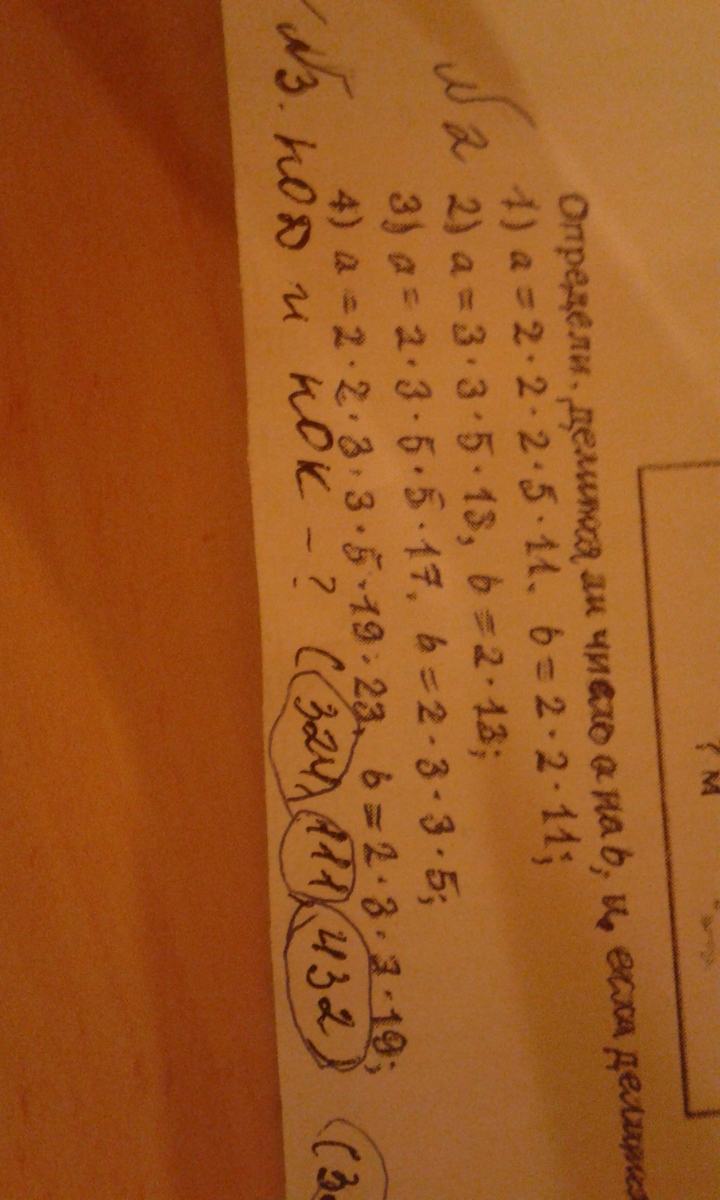 ? м
Определи, делится ли число a на b, и, если делится
№ 2
1) a = 2 · 2 · 2 · 5 · 11, b = 2 · 2 · 11;
2) a = 3 · 3 · 5 · 13, b = 2 · 13;
3) a = 2 · 3 · 5 · 5 · 17, b = 2 · 3 · 3 · 5;
4) a = 2 · 2 · 3 · 3 · 5 · 19 · 23, b = 2 · 3 · · 19;
№3. НОД и НОК - ? (324, 111, 432) (3